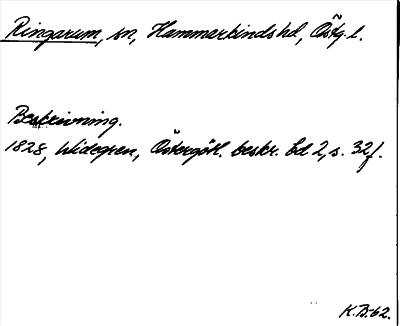 Ringarum, sn, Hammarkinds hd, Östg. l.
Beskrivning.
1828, Widegren, Östergötl. beskr. bd 2, s. 32 f.
K.B-62.